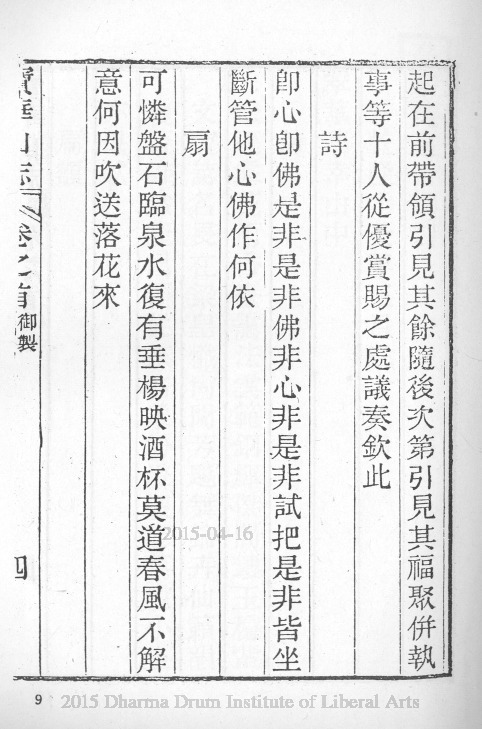 起在前帶領引見其餘隨後次第引見其福聚併執
事等十人從優賞賜之處議奏欽此
詩
卽心卽佛是非是非佛非心非是非試把是非皆坐
斷管他心佛作何依
扇
可憐盤石臨泉水復有垂楊映酒杯莫道春風不解
意何因吹送落花來
寶華山志 卷之首 御製 四
2015-04-16
9 2015 Dharma Drum Institute of Liberal Arts